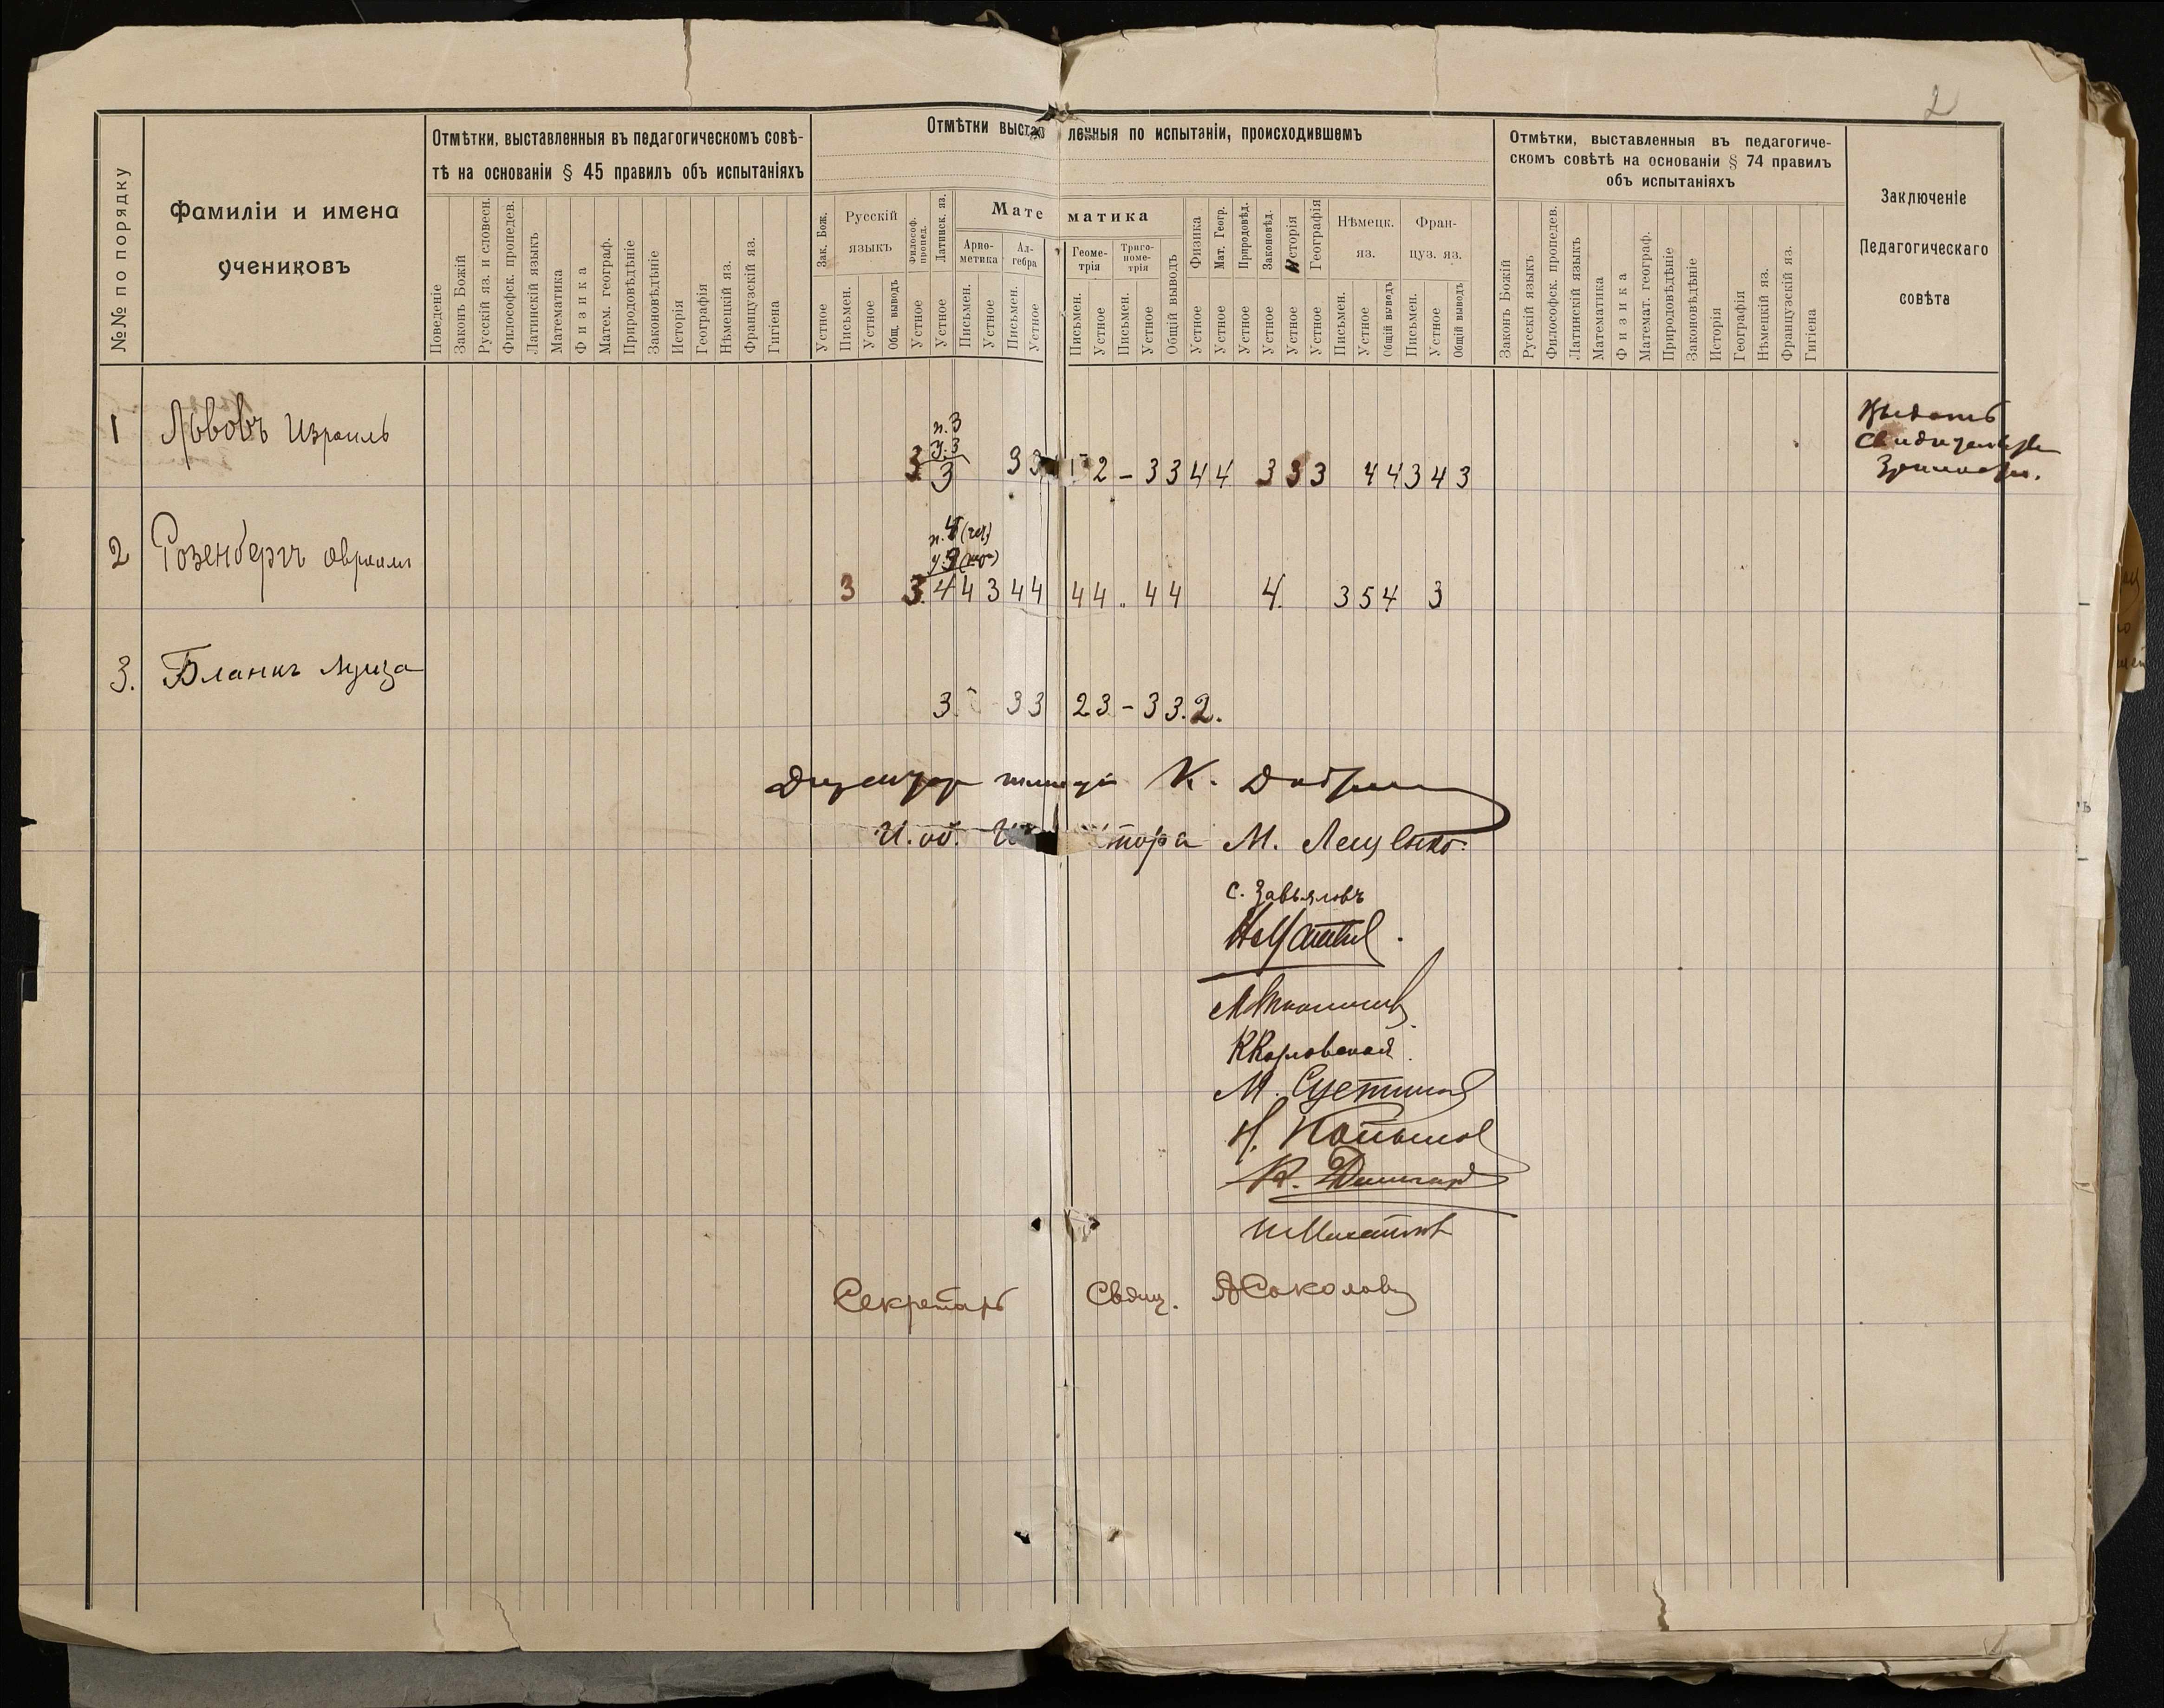 2
№№ по порядку
Фамиліи и имена
учениковъ
Отмѣтки, выставленныя въ педагогическомъ совѣ-
тѣ на основаніи § 45 правилъ объ испытаніяхъ
Поведеніе
Законъ Божій
Русскій яз. и словесн.
Философск. пропедев.
Латинскій языкъ
Математика
Физика
Матем. географ.
Природовѣдѣніе
Законовѣдѣніе
Исторія
Географія
Нѣмецкій яз.
Французскій яз.
Гигіена
Отмѣтки выставленныя по испытаніи, происходившемъ
Зак. Бож.
Устное
Русскій
языкъ
Письмен.
Устное
Общ. выводъ
Философ.
пропед.
Устное
Латинск. яз.
Устное
Математика
Арно-
метика
Письмен.
Устное
Ал-
гебра
Письмен.
Устное
Геоме-
трія
Письмен.
Устное
Триго-
номе-
трія
Письмен.
Устное
Общій выводъ
Физика
Устное
Мат. Геогр.
Устное
Природовѣд.
Устное
Законовѣд.
Устное
Исторія
Устное
Географія
Устное
Нѣмецк.
яз.
Письмен.
Устное
Общій выводъ
Фран-
цуз. яз.
Письмен.
Устное
Общій выводъ
Отмѣтки, выставленныя въ педагогиче-
скомъ совѣтѣ на основаніи § 74 правилъ
объ испытаніяхъ
Законъ Божій
Русскій языкъ
Философск. пропедев.
Латинскій языкъ
Математика
Физика
Математ. географ.
Природовѣдѣніе
Законовѣдѣніе
Исторія
Географія
Нѣмецкій яз.
Французскій яз.
Гигіена
Заключеніе
Педагогическаго
совѣта
1 Львовъ Израиль
п. 3
у. 3
3 3 3 3 2 – 3 3 4 4 3 3 3 4 4 3 4 3
Выдать
зрѣлости.
2 Розенбергъ Авраамъ
п. 4
3 3. 4 4 3 4 4 4 4 „ 4 4 4. 3 5 4 3
3. Бланкъ Луиза
3. 3 3 2 3 – 3 3. 2.
Директоръ гимназіи К.
И. об. тора М. Лещенко.
С. Завьяловъ
К Карловская.
М. Суетинов
Секретарь Свящ. А Соколовъ